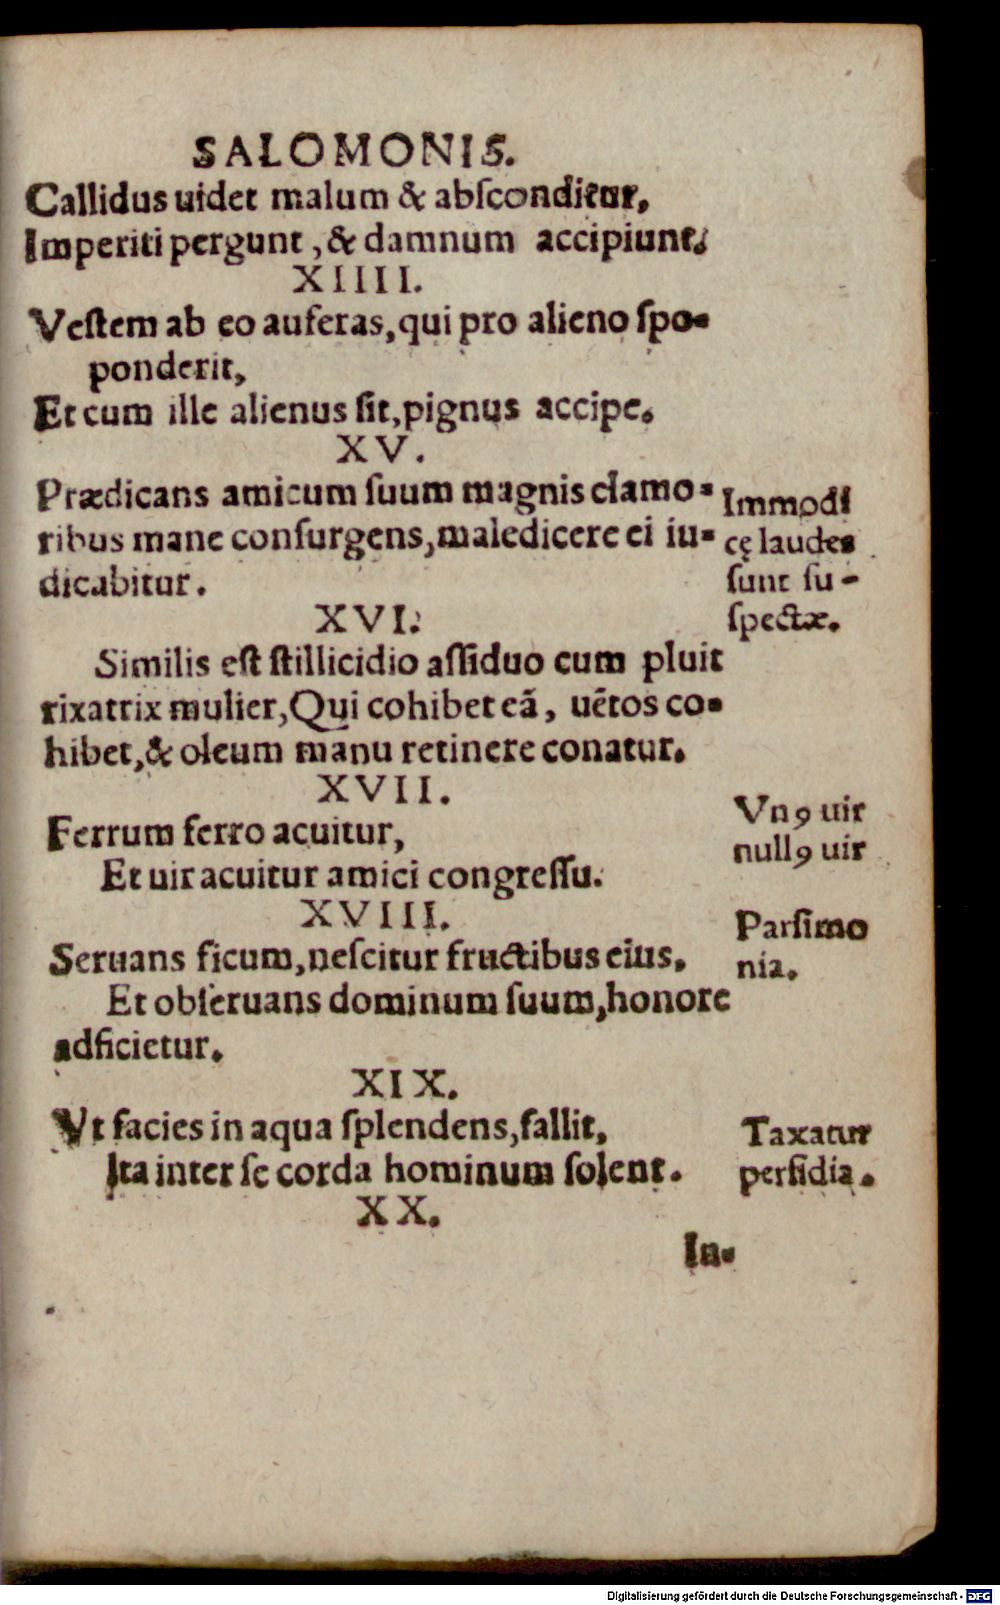 SALOMONIS.
Callidus uidet malum & abſconditur,
Imperiti pergunt, & damnum accipiunt.
XIIII.
Veſtem ab eo auferas, qui pro alieno ſpo-
ponderit,
Et cum ille alienus ſit, pignus accipe.
XV.
Prædicans amicum ſuum magnis clamo-
ribus mane conſurgens, maledicere ei iu-
dicabitur.
Immodi
cę laudes
ſunt ſu-
ſpectæ.
XVI.
Similis eſt ſtillicidio aſſiduo cum pluit
rixatrix mulier, Qui cohibet eã, uẽtos co-
hibet, & oleum manu retinere conatur.
XVII.
Ferrum ferro acuitur,
Et uir acuitur amici congreſſu.
Vnꝯ uir
nullꝯ uir
XVIII.
Seruans ficum, neſcitur fructibus eius.
Et obſeruans dominum ſuum, honore
adficietur.
Parſimo
nia.
XIX.
Vt facies in aqua ſplendens, fallit,
Ita inter ſe corda hominum ſolent.
Taxatur
perfidia.
XX.
In-
Digitalisierung gefördert durch die Deutsche Forschungsgemeinschaft - DFG